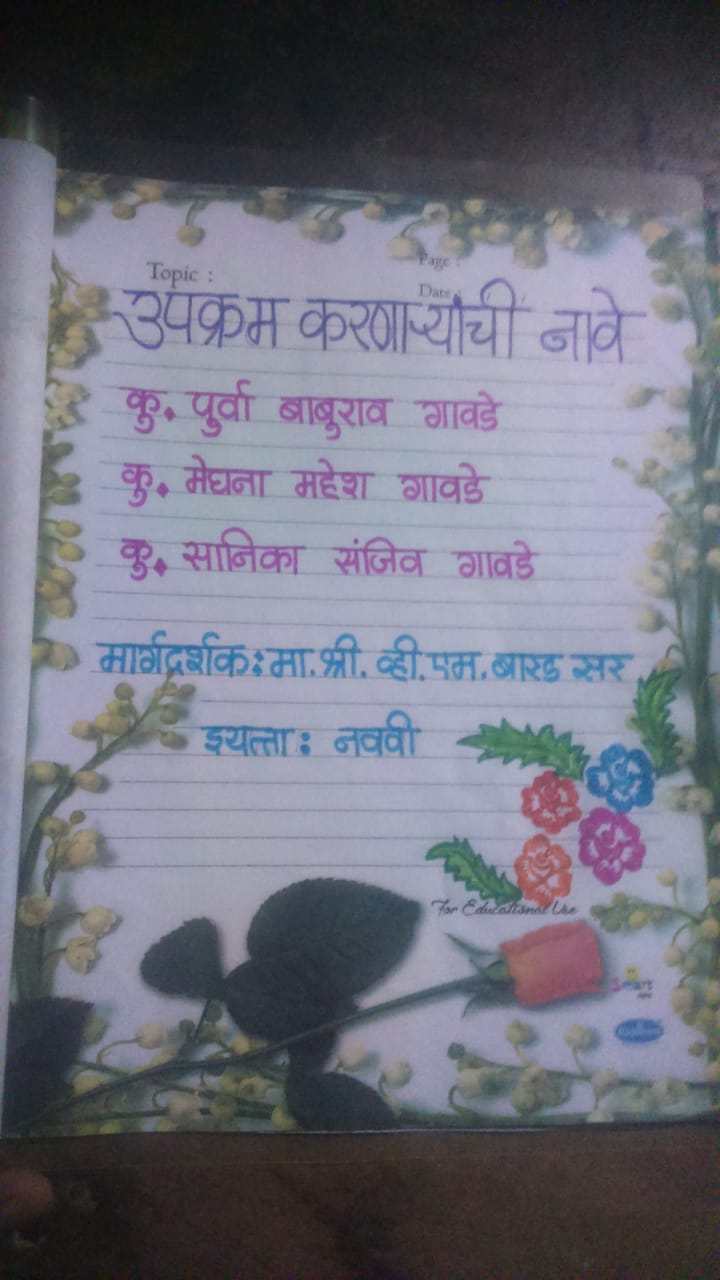 Topic :
Page :
Date :
उपक्रम करणाऱ्यांची नावे
कु. पुर्वा बाबुराव गावडे
कु. मेघना महेश गावडे
कु. सानिका संजिव गावडे
मार्गदर्शक: मा. श्री. व्ही. एम. बारड सर
इयत्ता : नववी
For Educational Use
Smart